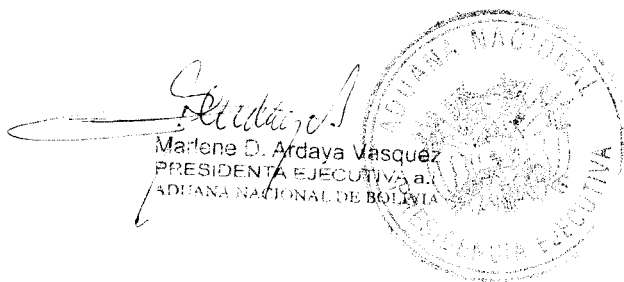 Marlene D. Ardaya Vasquez
PRESIDENTA EJECUTIVA a.i.
ADUANA NACIONAL DE BOLIVIA
ADUANA NACIONAL
PRESIDENCIA EJECUTIVA